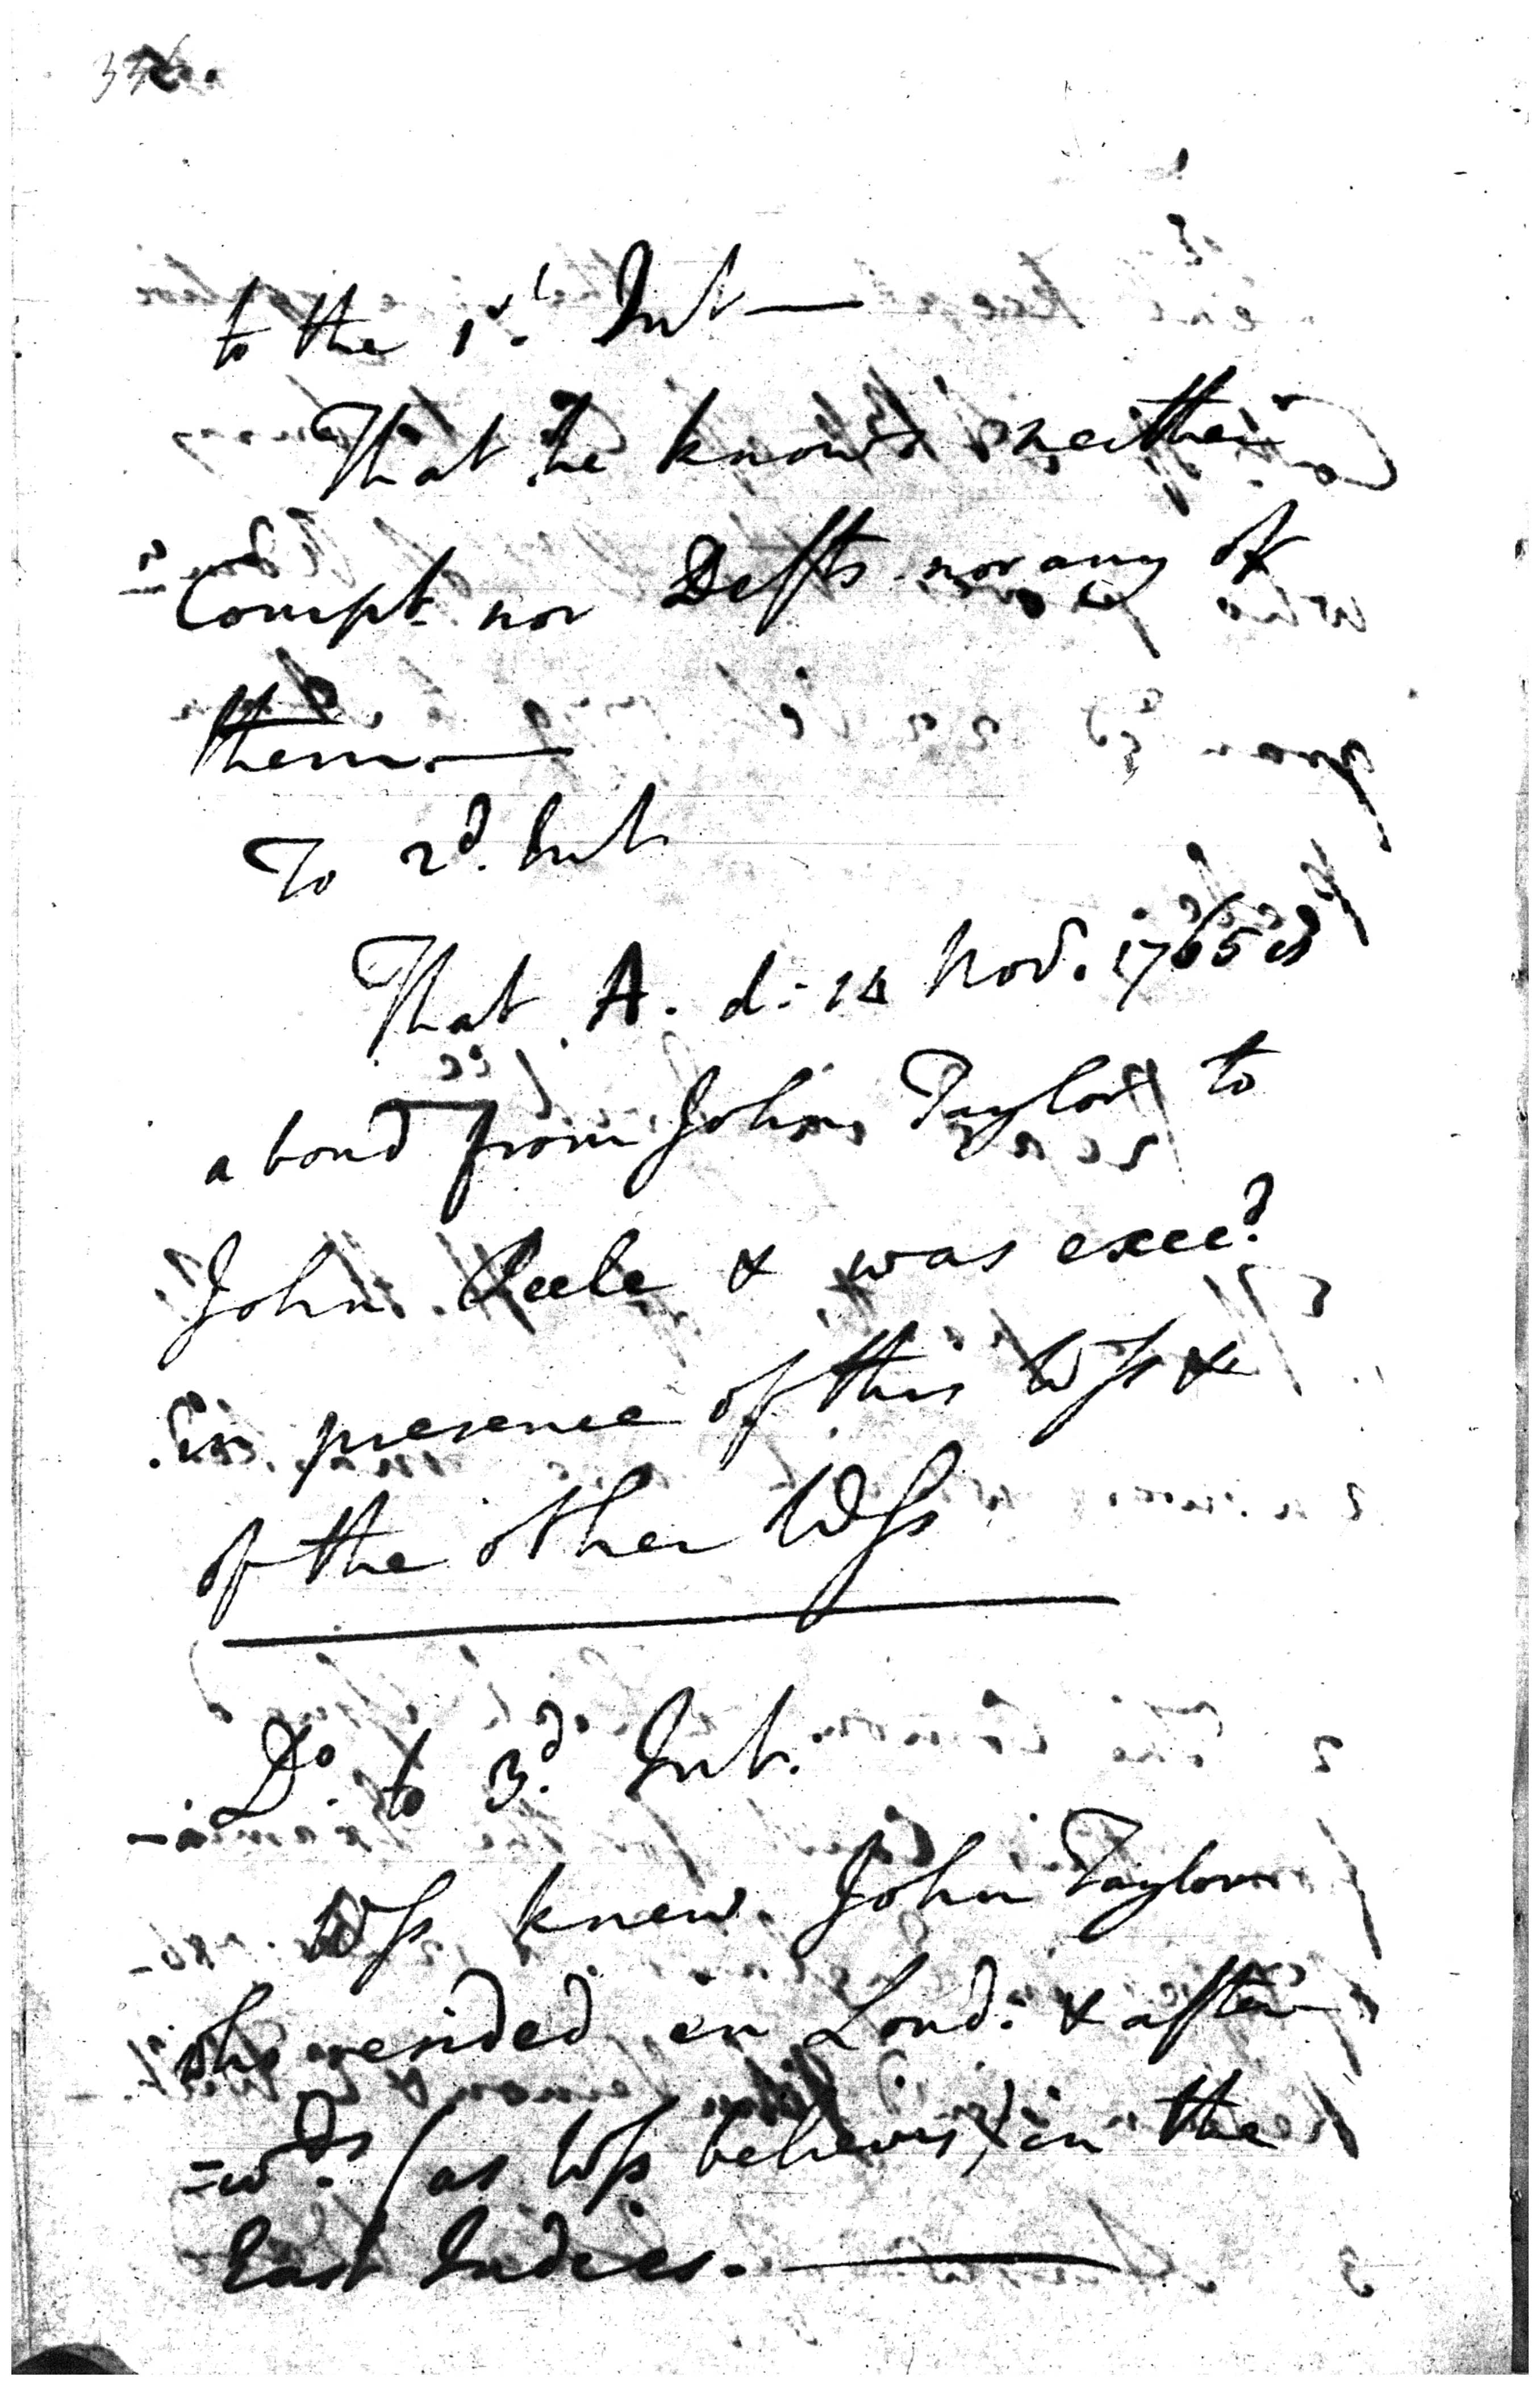 to the 1st. Int—
That he knows neither
Compt. nor Defts nor any of
them.—
To 2d. Int.
That A. d: 14 Nov. 1765 is
a bond from John Taylor to
John & was exec.d
in presence of this Wss &
of the other Wss
Do. to 3d. Int.
Wss knew John Taylor
who resided in Lond: & after
=w.ds (as Wss believes) in the
East Indies.—